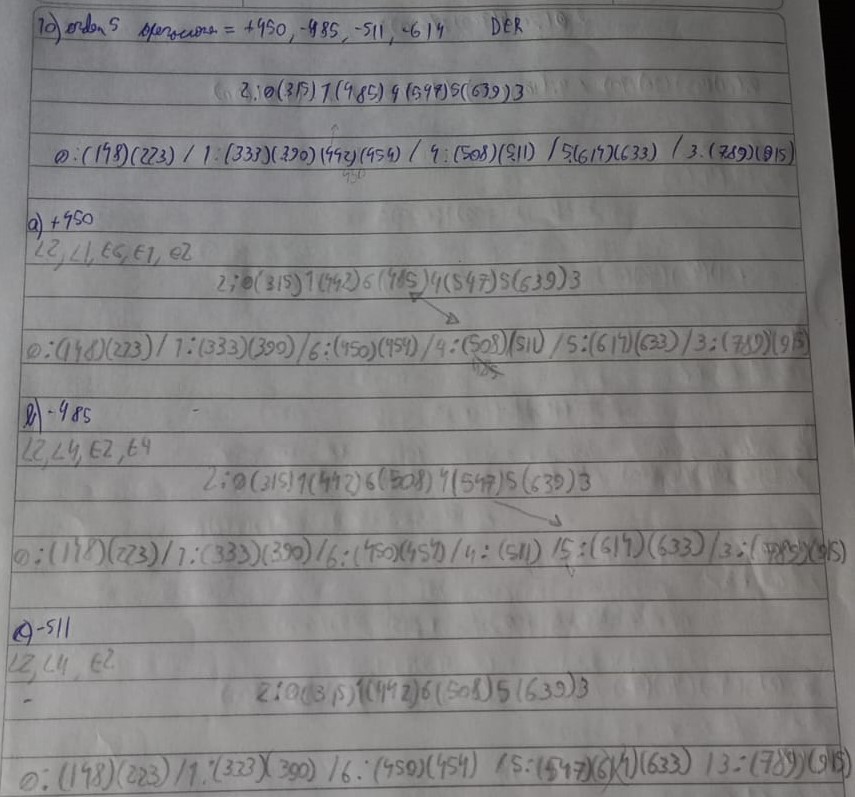 10) orden 5 operaciones = +450, -485, -511, -614 DER
2:0(315)1(485)4(547)5(639)3
0:(148)(223) / 1:(333)(390)(442)(454) / 4:(508)(511) / 5(614)(633) / 3:(789)(915)
450
a) +450
L2, L1, E6, E1, e2
2:0(315)1(442)6(485)4(547)5(639)3
0:(148)(223) / 1:(333)(390) / 6:(450)(454) / 4:(508)(511) / 5:(614)(633) / 3:(789)(915)
485
b) -485
L2, L4, E2, E4
2:0(315)1(442)6(508)4(547)5(639)3
0:(148)(223) / 1:(333)(390) / 6:(450)(454) / 4:(511) / 5:(614)(633) / 3:(789)(915)
c) -511
L2, L4, E2
2:0(315)1(442)6(508)5(639)3
0:(148)(223) / 1:(323)(390) / 6:(450)(454) / 5:(547)(614)(633) / 3:(789)(915)